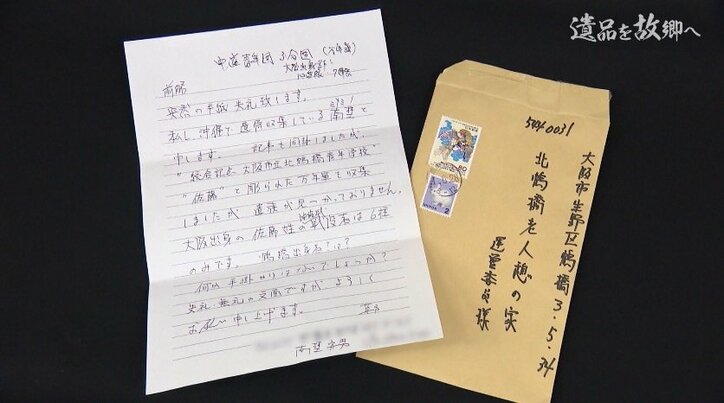 遺品を故郷へ
前略
突然の手紙 失礼致します。
私し沖縄で遺骨収集している南埜と
申します。 記事も同封しましたが、
大阪市立北鶴橋青年学校"
"佐藤"と彫られた万年筆を収集
しましたが 遺族が見つかっておりません。
大阪出身の佐藤姓の戦没者は6柱
のみです。 鶴橋出身者?は?
何か手掛かりはないでしょうか?
失礼 無礼の文面ですが よろしく
お願い申し上げます。 草々
南埜安男
5440031
大阪市生野区鶴橋3.5.34
北鶴橋老人憩の家
運営委員様
80